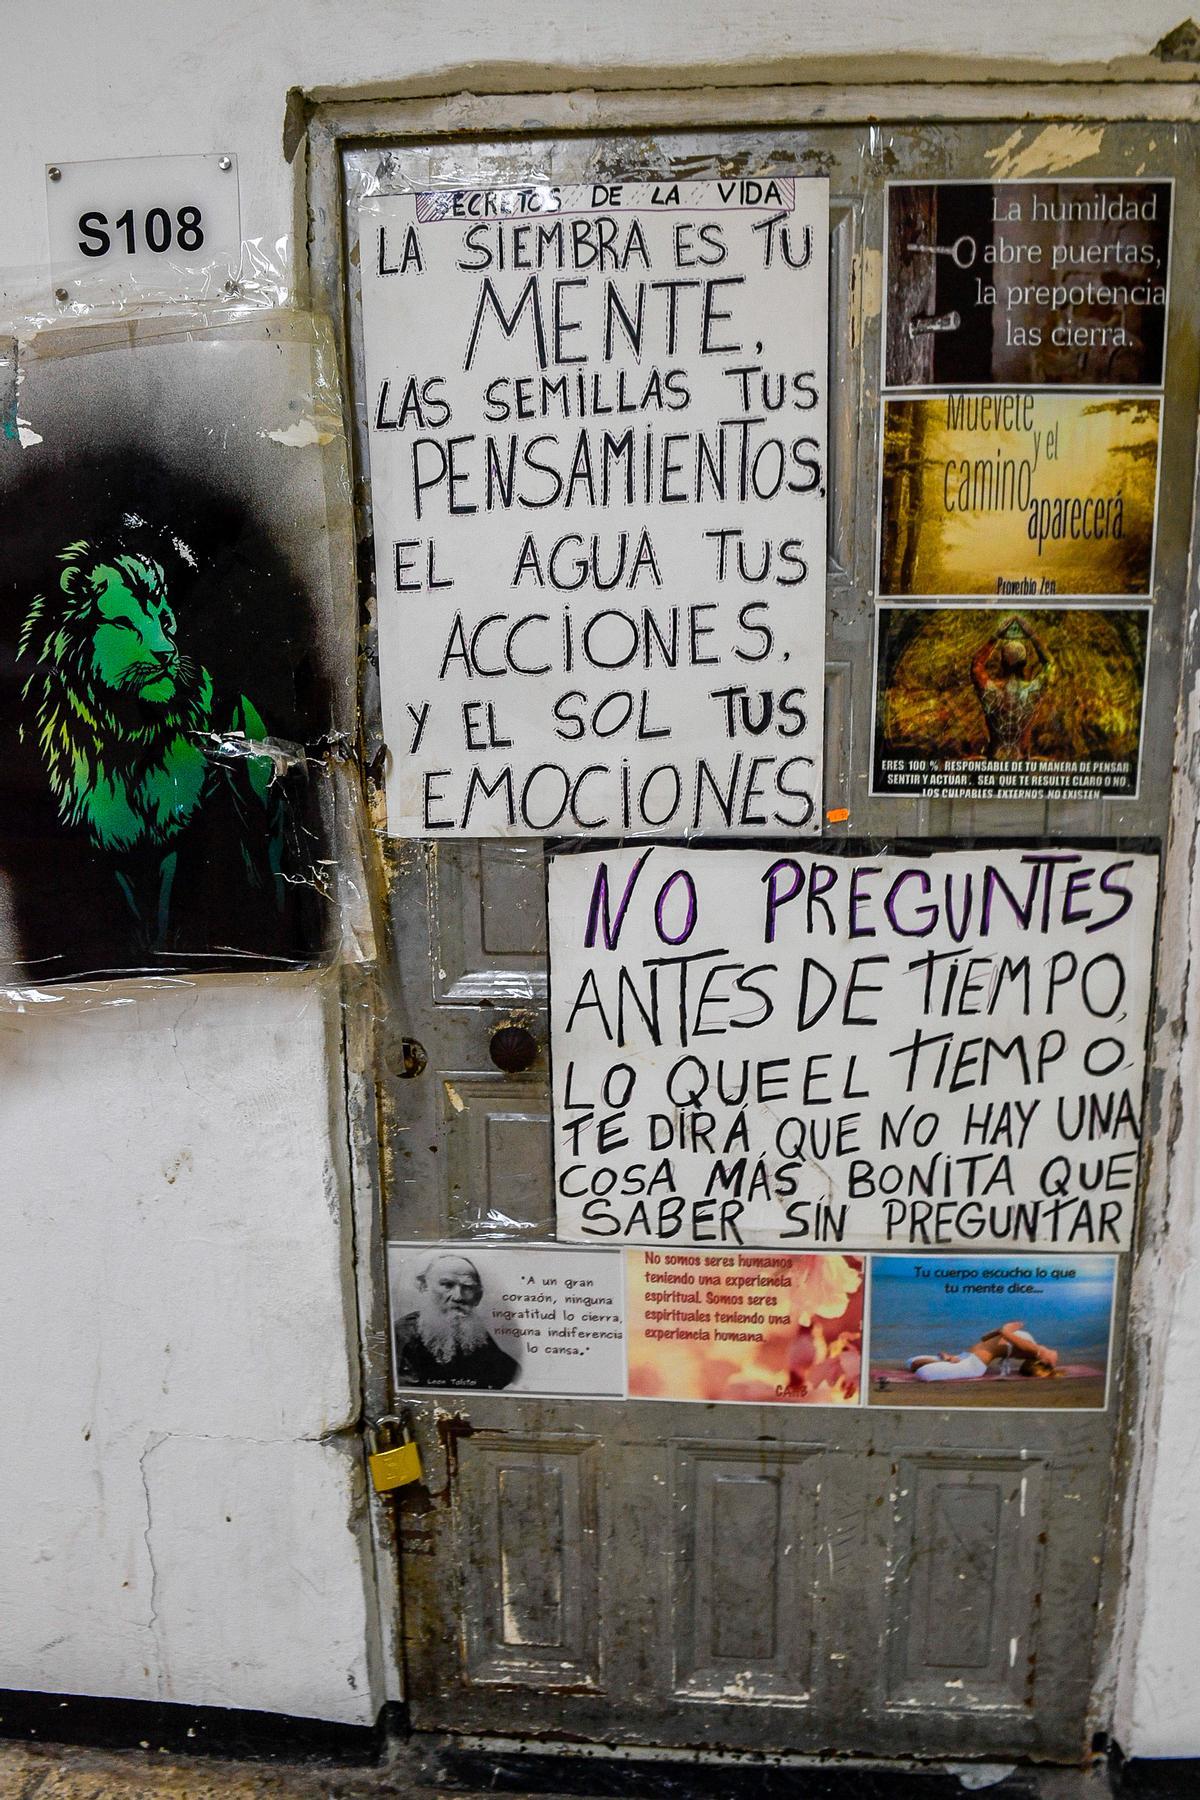 S108
SECRETOS DE LA VIDA
LA SIEMBRA ES TU
MENTE,
LAS SEMILLAS TUS
PENSAMIENTOS,
EL AGUA TUS
ACCIONES,
Y EL SOL TUS
EMOCIONES
La humildad
abre puertas,
la prepotencia
las cierra.
Muévete
y el
camino
aparecerá.
Proverbio Zen
ERES 100 % RESPONSABLE DE TU MANERA DE PENSAR
SENTIR Y ACTUAR. SEA QUE TE RESULTE CLARO O NO.
LOS CULPABLES EXTERNOS NO EXISTEN
NO PREGUNTES
ANTES DE TIEMPO,
LO QUE EL TIEMPO
TE DIRÁ, QUE NO HAY UNA
COSA MÁS BONITA QUE
SABER SIN PREGUNTAR
"A un gran
corazón, ninguna
ingratitud lo cierra,
ninguna indiferencia
lo cansa."
Leon Tolstoi
No somos seres humanos
teniendo una experiencia
espiritual. Somos seres
espirituales teniendo una
experiencia humana.
Tu cuerpo escucha lo que
tu mente dice...